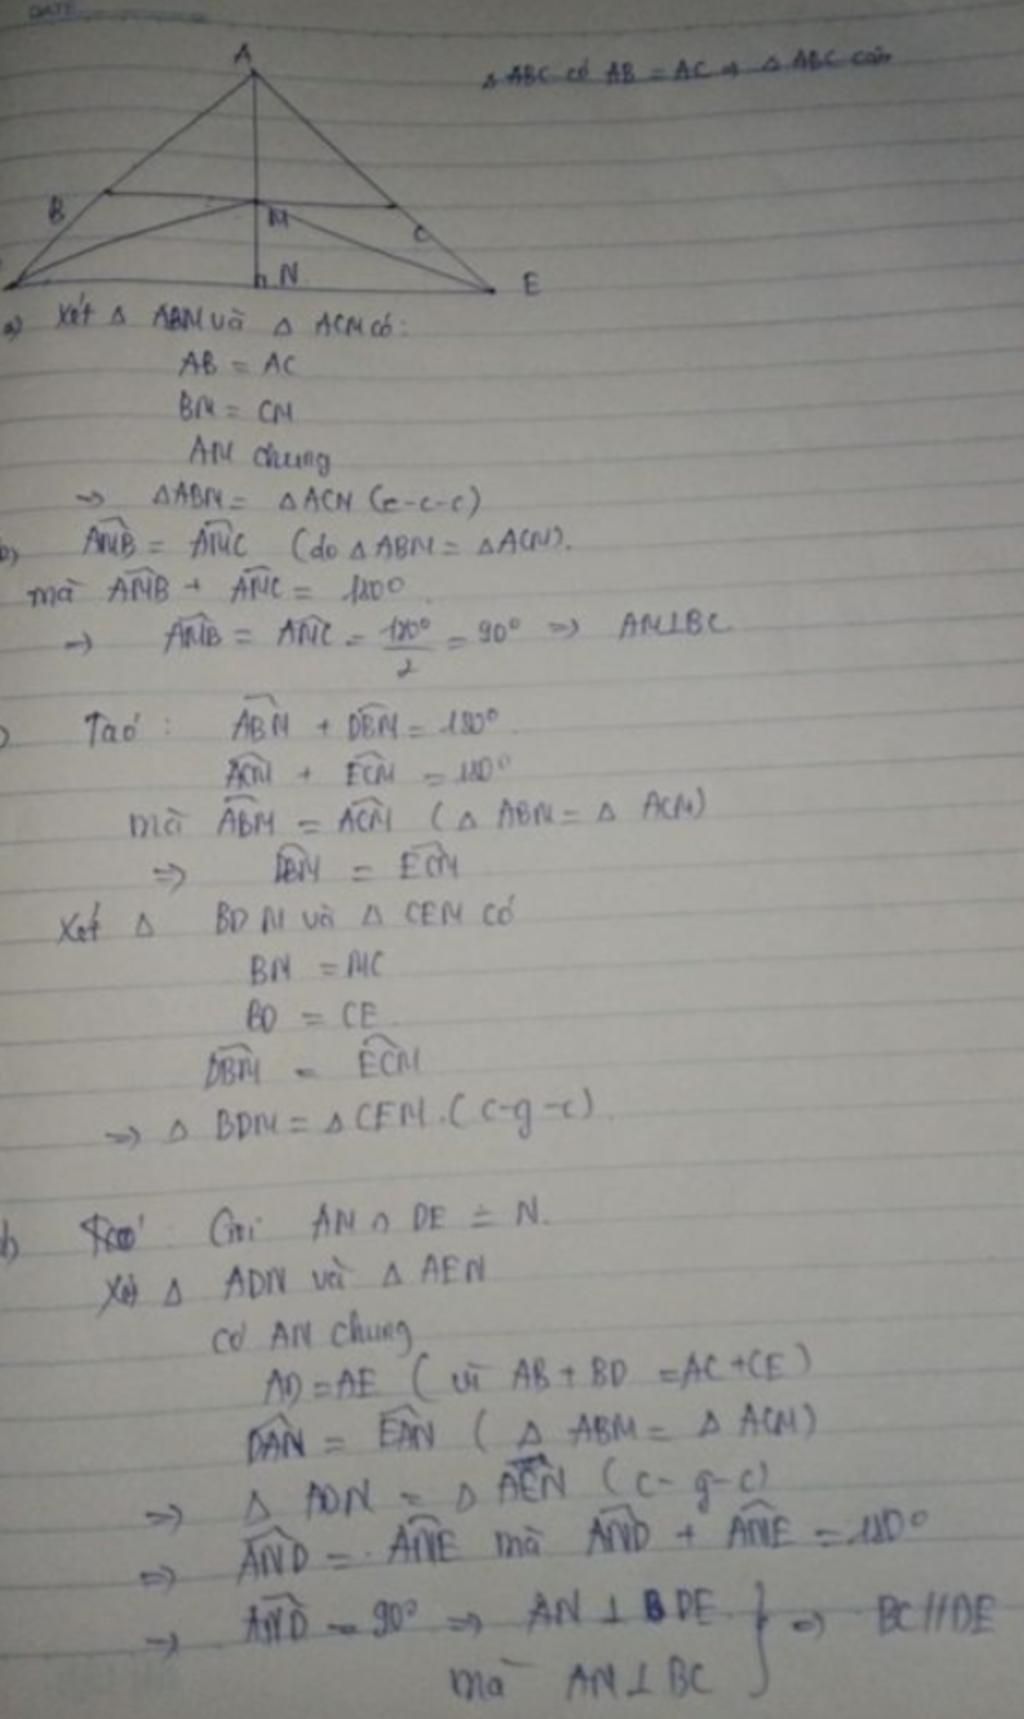 DATE
A
△ ABC có AB = AC ⇒ △ ABC cân
B
M
C
N
E
a) Xét △ ABM và △ ACM có:
AB = AC
BM = CM
AM chung
⇒ △ABM = △ACM (c-c-c)
b) \widehat{AMB} = \widehat{AMC} (do △ABM = △ACM).
mà \widehat{AMB} + \widehat{AMC} = 180°
⇒ \widehat{AMB} = \widehat{AMC} = \frac{180°}{2} = 90° ⇒ AM⊥BC
Ta có: \widehat{ABM} + \widehat{DBM} = 180°
\widehat{ACM} + \widehat{ECM} = 180°
mà \widehat{ABM} = \widehat{ACM} (△ ABM = △ ACM)
⇒ \widehat{DBM} = \widehat{ECM}
Xét △ BDM và △ CEM có
BM = MC
BD = CE
\widehat{DBM} = \widehat{ECM}
⇒ △ BDM = △CEM. (c-g-c).
Gọi AM ∩ DE = N.
Xét △ ADN và △ AEN
có AN chung
AD = AE (vì AB + BD = AC + CE)
\widehat{DAN} = \widehat{EAN} (△ ABM = △ ACM)
⇒ △ ADN = △ AEN (c-g-c)
⇒ \widehat{AND} = \widehat{ANE} mà \widehat{AND} + \widehat{ANE} = 180°
⇒ \widehat{AND} = 90° ⇒ AN ⊥ DE } ⇒ BC//DE
mà AN⊥BC